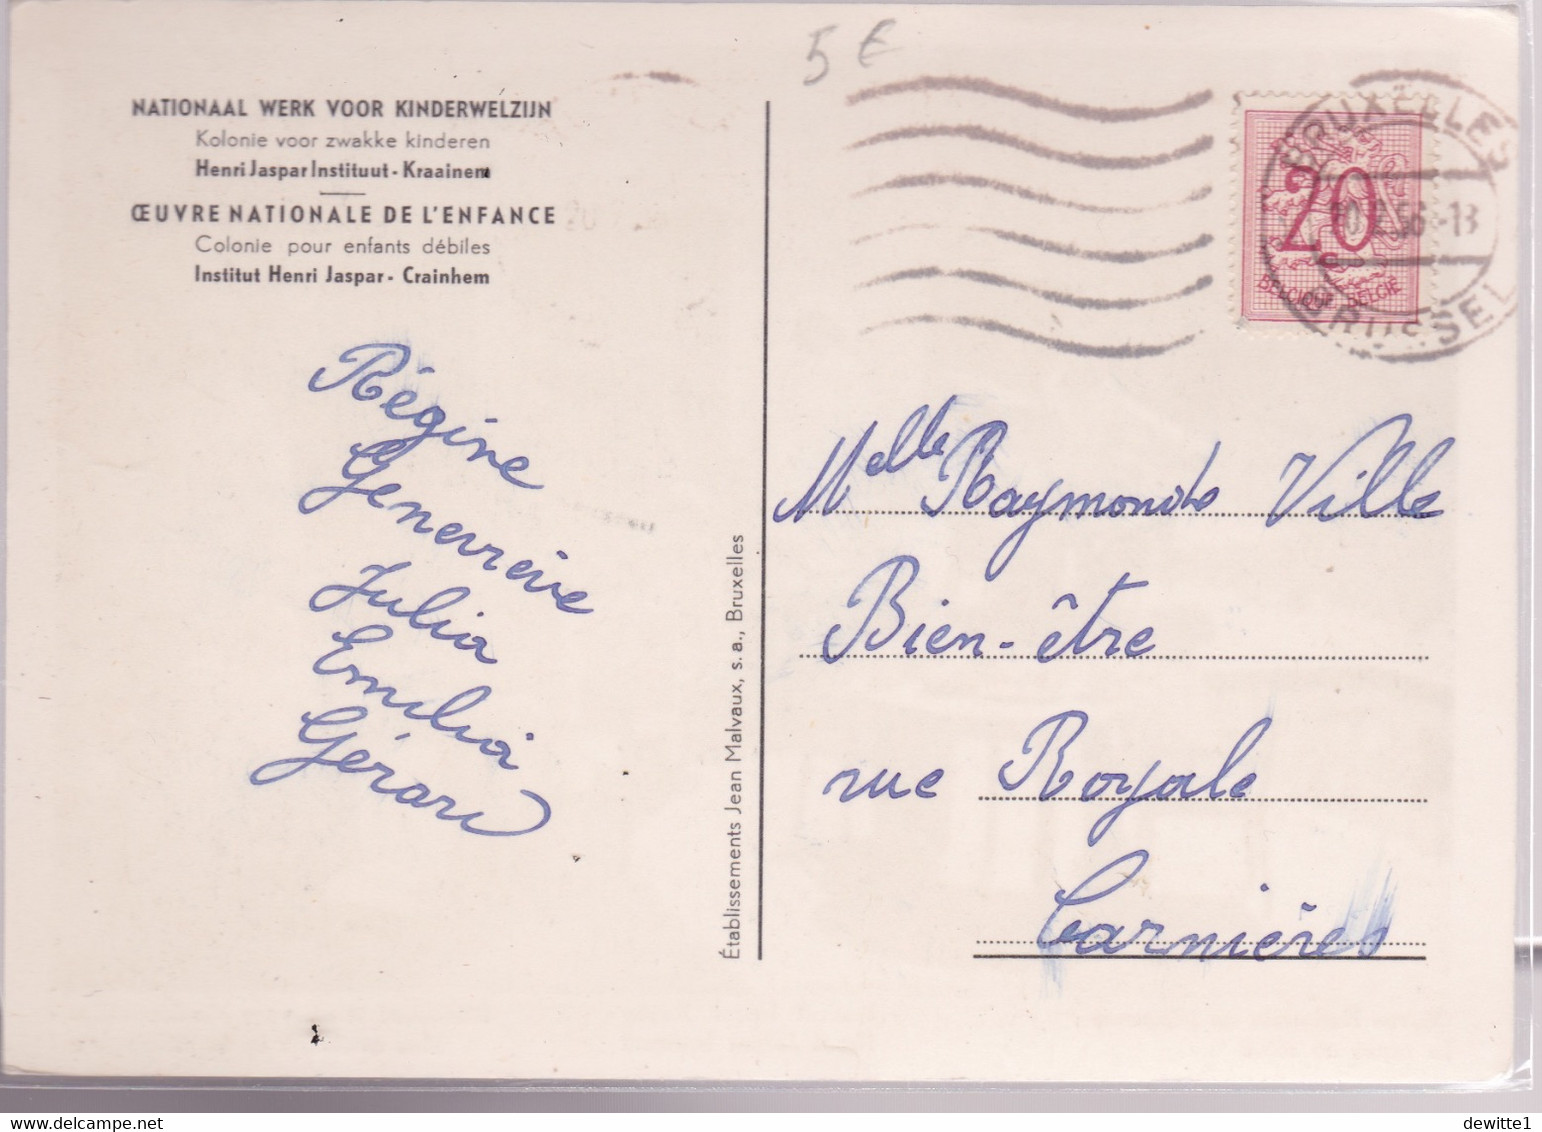 5 €
NATIONAAL WERK VOOR KINDERWELZIJN
Kolonie voor zwakke kinderen
Henri Jaspar Instituut - Kraainem
ŒUVRE NATIONALE DE L'ENFANCE
Colonie pour enfants débiles
Institut Henri Jaspar - Crainhem
BRUXELLES
56-13
BRUSSEL
20c
BELGIQUE BELGIË
Régine
Geneviève
Julia
Emilia
Gérard
Établissements Jean Malvaux, s. a., Bruxelles
Melle Raymonde Ville
Bien-être
rue Royale
Carnières
dewitte1